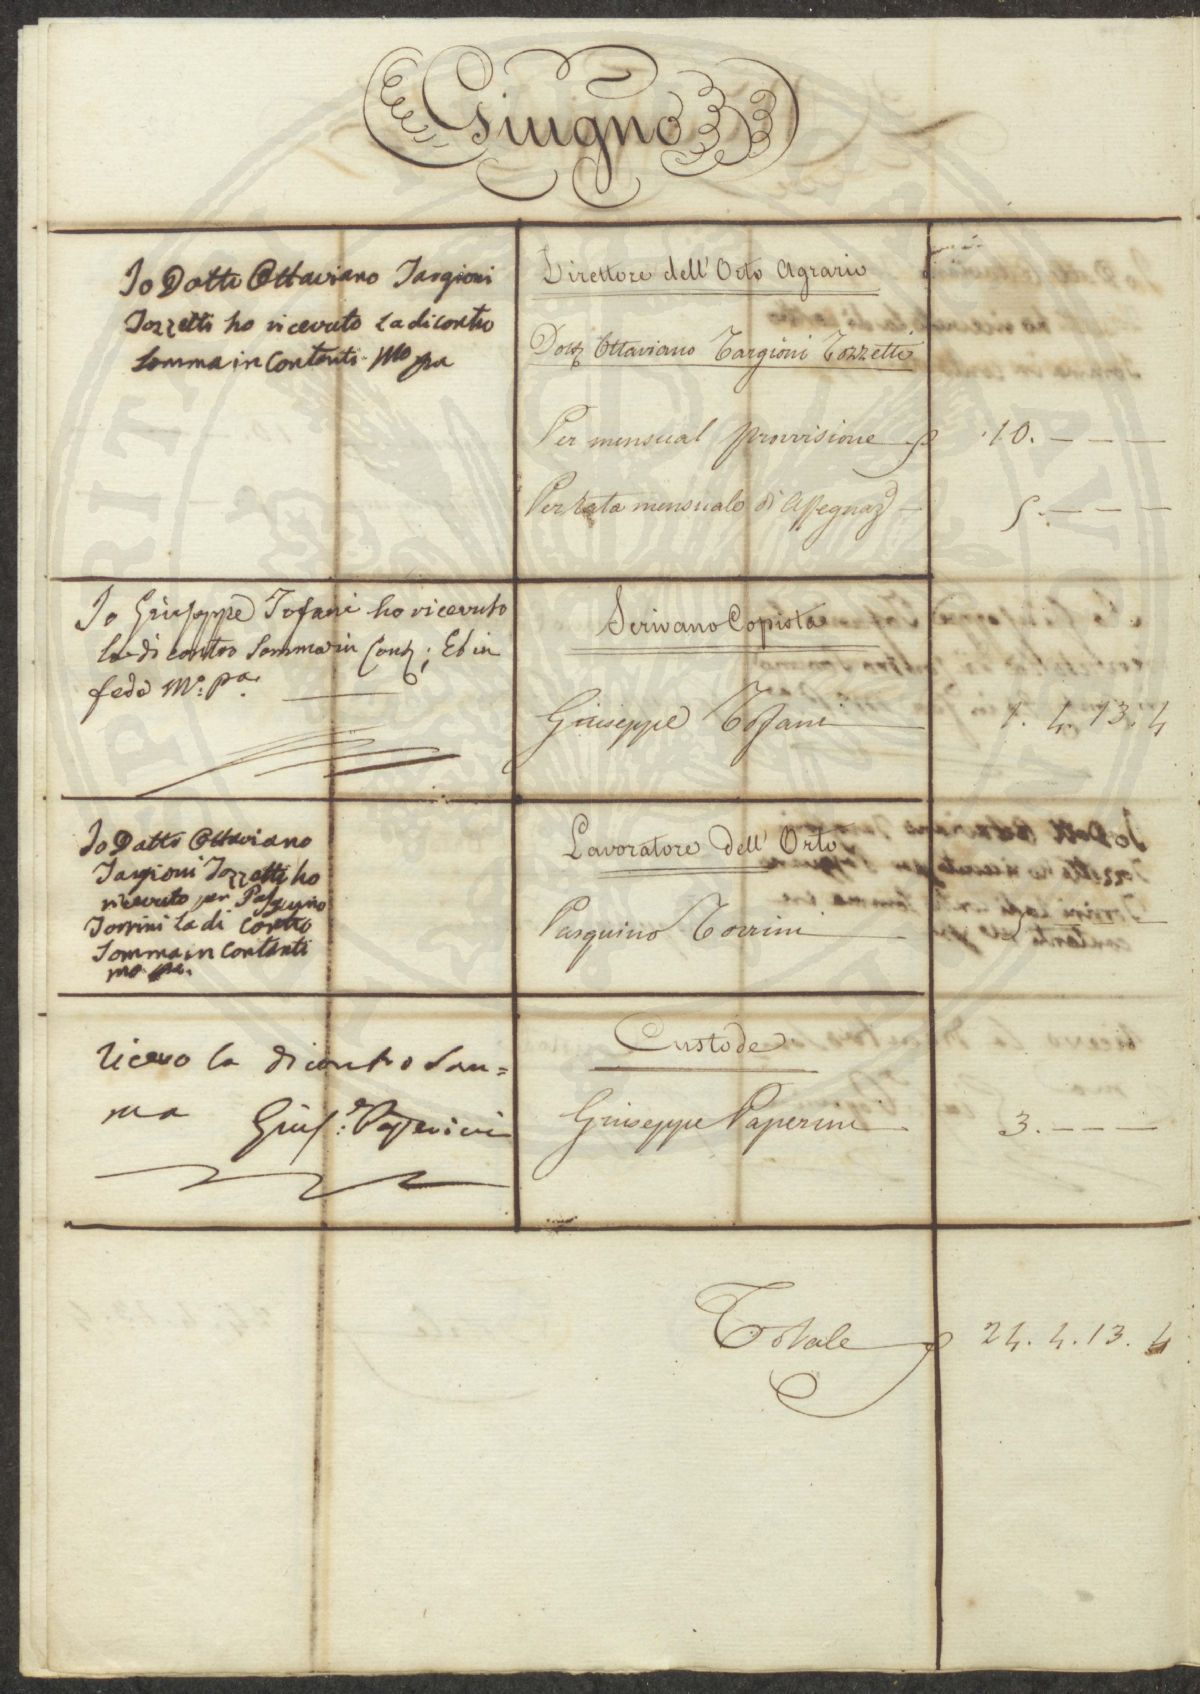 Giugno
Io Dotte Ottaviano Targioni
Tozzetti ho ricevuto la di contro
Somma in Contanti Mo pa
Direttore dell' Orto Agrario
Dott Ottaviano Targioni Tozzetti
Per mensual provvisione 10. — — —
Per Rata mensuale di Assegnaz 5. — — —
Io Giuseppe Tofani ho ricevuto
la di contro Somma in Cont; Et in
fede Mo. pa.
Scrivano Copista
Giuseppe Tofani 1. 4. 13. 4
Io Dotto Ottaviano
Targioni Tozzetti ho
ricevuto per Pasquino
Torrini la di Contro
Somma in Contanti
mo pa.
Lavoratore dell' Orto
Pasquino Torrini 5. — — —
Ricevo la di contro Som=
ma Giuse: Paperini
Custode
Giuseppe Paperini 3. — — —
Totale 24. 4. 13. 4